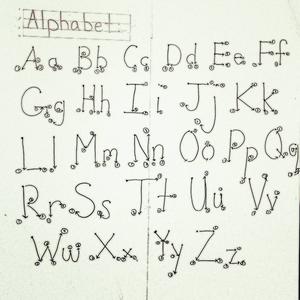 Alphabet
Aa Bb Cc Dd Ee Ff
Gg Hh Ii Jj Kk
Ll Mm Nn Oo Pp Qq
Rr Ss Tt Uu Vv
Ww Xx Yy Zz